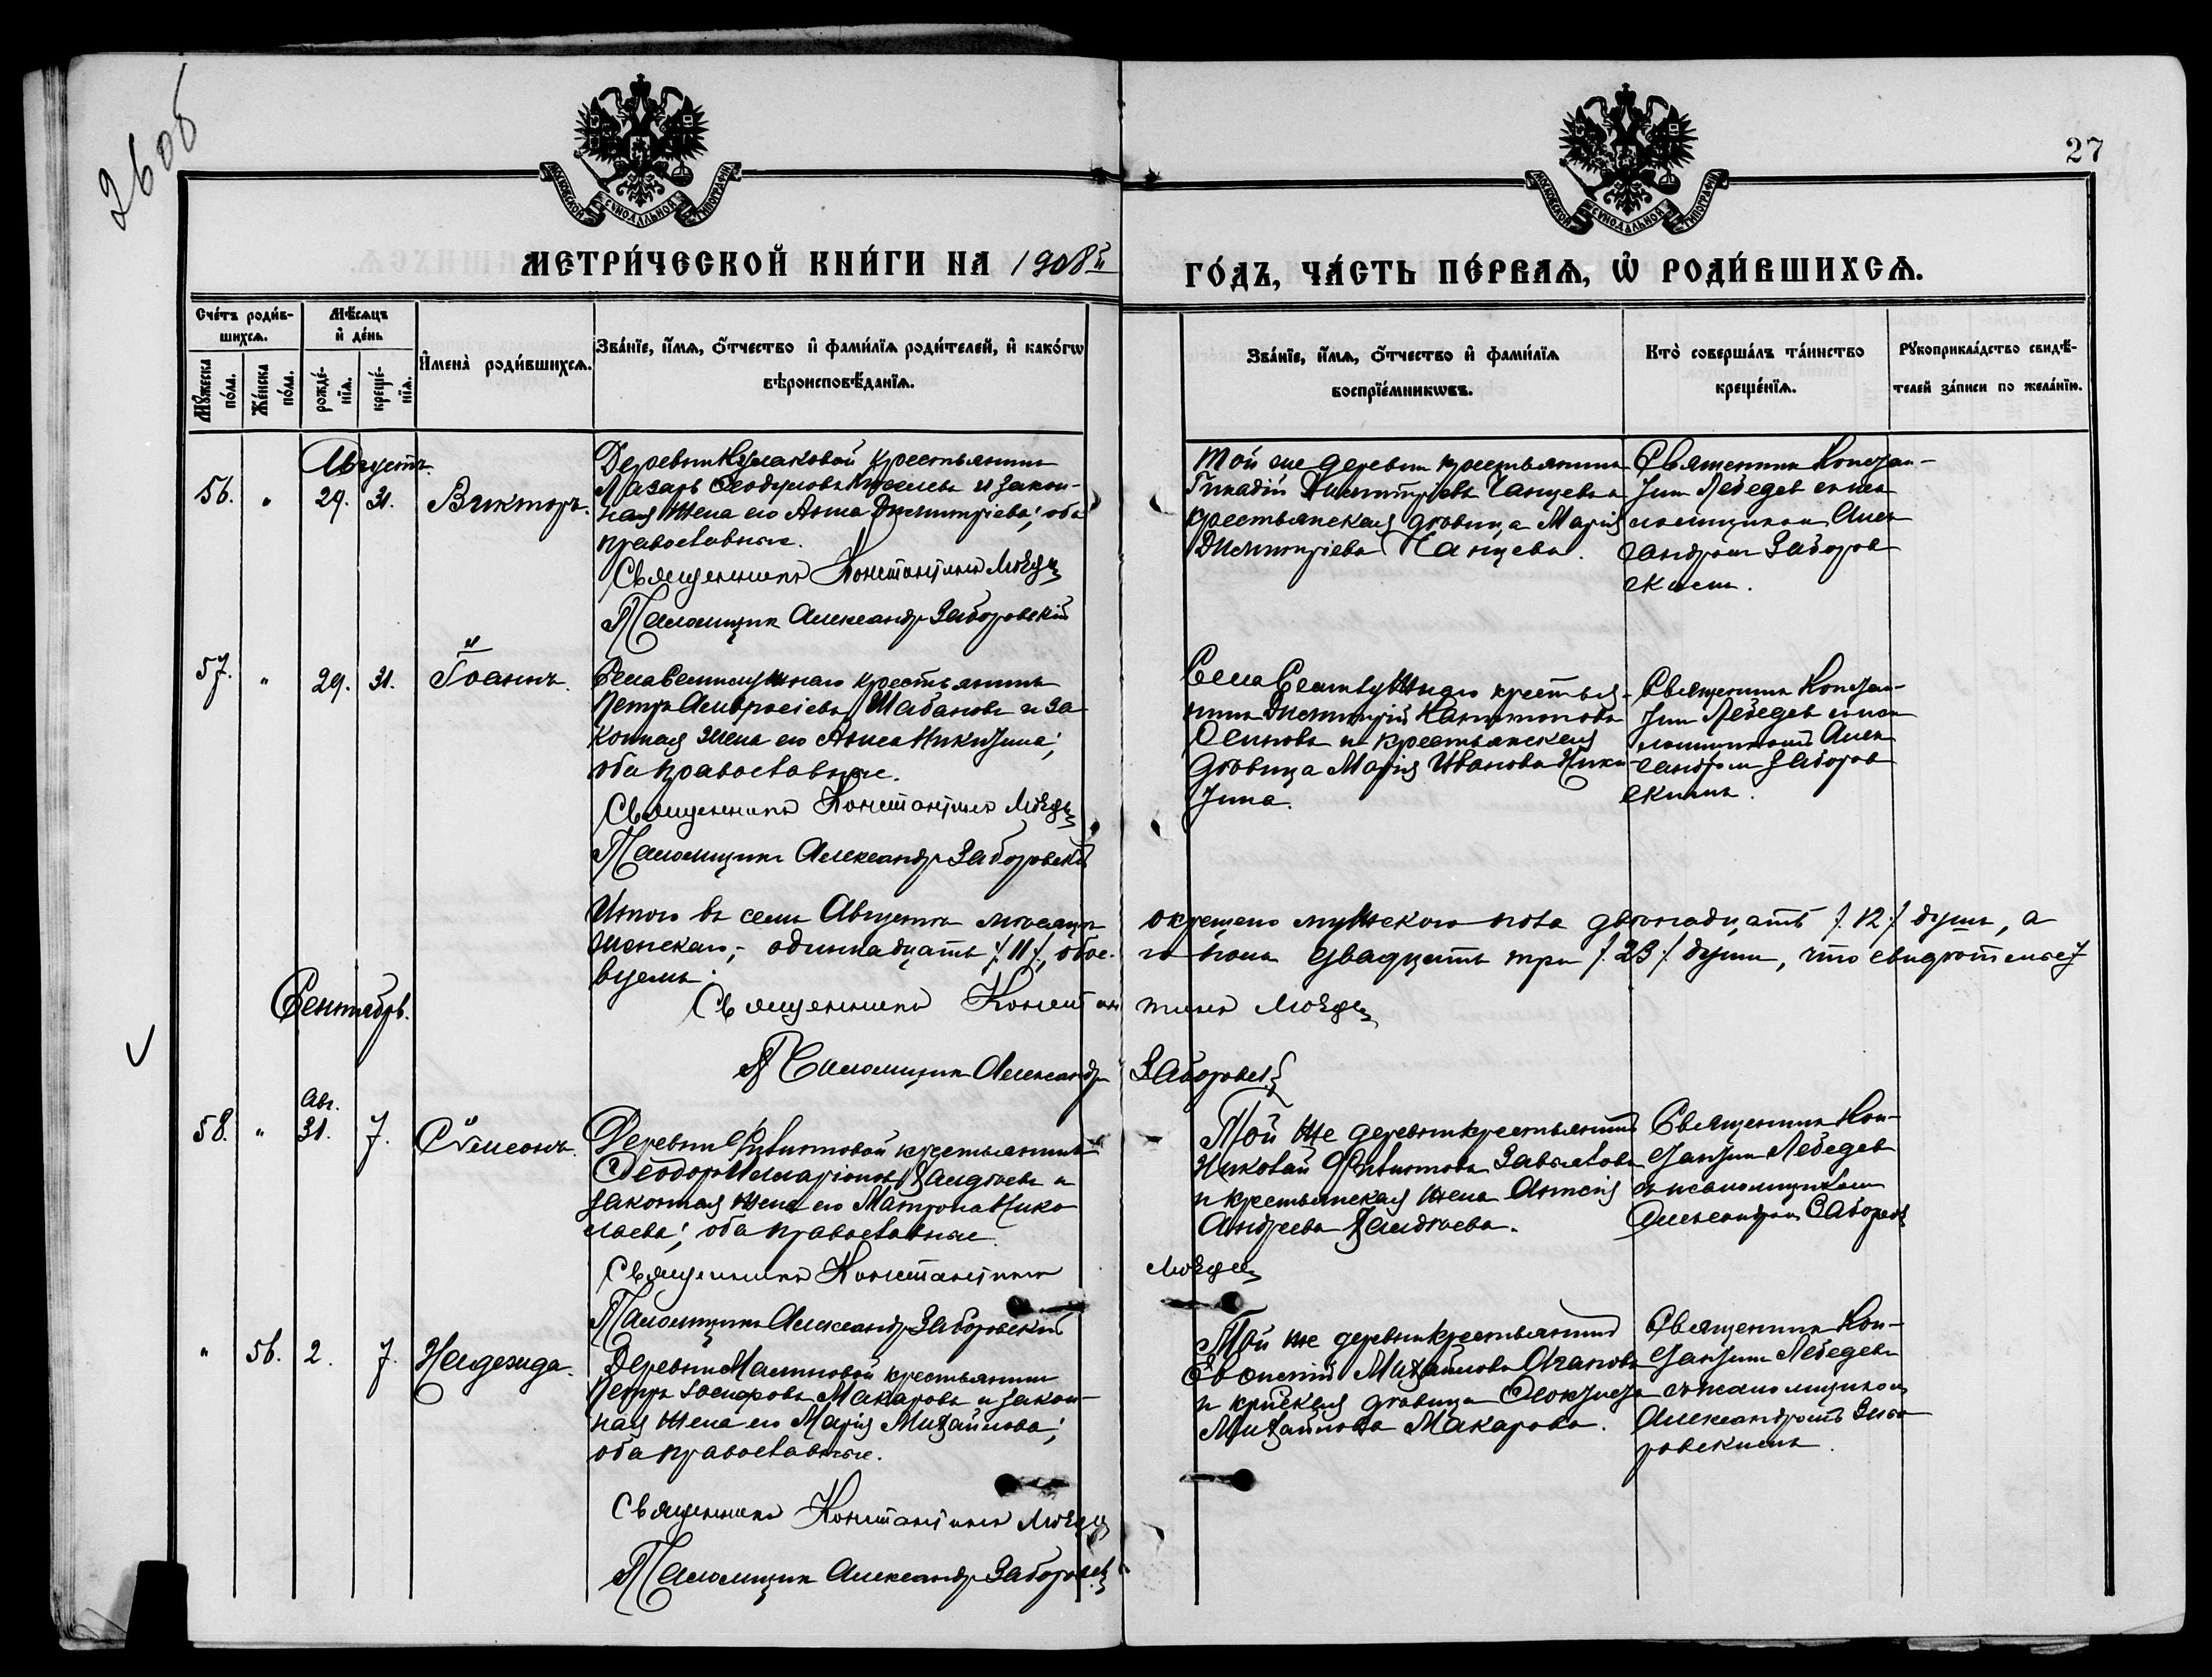 2608
27
МОСКОВСКОЙ СѴНОДАЛЬНОЙ ТИПОГРАФІИ
МОСКОВСКОЙ СѴНОДАЛЬНОЙ ТИПОГРАФІИ
МЕТРИ́ЧЕСКОЙ КНИ́ГИ НА 1908й
ГО́ДЪ, ЧА́СТЬ ПЕ́РВАѦ, Ѡ҆ РОДИ́ВШИХСѦ.
Сче́тъ роди́в-
шихсѧ.
Мѣ́сѧцъ
и҆ де́нь
Мꙋ́жеска по́ла.
Же́нска по́ла.
рожде́-
нїѧ.
креще́-
нїѧ.
И҆мена̀ роди́вшихсѧ.
Зва́нїе, и҆́мѧ, ѻ҆́тчество и҆ фами́лїѧ роди́телей, и҆ како́гѡ
вѣроисповѣ́данїѧ.
Зва́нїе, и҆́мѧ, ѻ҆́тчество и҆ фами́лїѧ
воспрїе́мникѡвъ.
Кто̀ соверша́лъ та́инство
креще́нїѧ.
Рꙋкоприкла́дство свидѣ́-
телей за́писи по жела́нїю.
Августъ.
56. " 29. 31. Викторъ.
Деревни Кулаковой крестьянинъ
Лазарь Ѳеодуловъ и закон-
ная жена его Анна Димитріева; оба
православные.
Священникъ Константинъ Лебедев
Псаломщик Александр Заборовскій
Той же деревни крестьянинъ
Димитріевъ Ганцевъ и
крестьянская дѣвица Марія
Димитріева Ганцева.
Священник Констан-
тин Лебедев с пса-
ломщиком Алек
сандром Заборов
ским.
57. " 29. 31. Іоаннъ.
Села крестьянинъ
Петръ Амвросіевъ Шабановъ и за
конная жена его Анна Никитина;
оба православные.
Священникъ Константинъ Лебедев
Псаломщикъ Александр Заборовскій
Села крестья-
нинъ Димитрій Капитоновъ
Осиповъ и крестьянская
дѣвица Марія Иванова Ники
тина.
Священник Констан-
тин Лебедев с пса
ломщиком Алек
сандром Заборов
ским.
Итого въ семъ Августѣ мѣсяцѣ
окрещено мужского пола двѣнадцать /.12./ душъ, а
женскаго,- одиннадцать /.11./, обое-
го пола двадцать три /.23./ души, что свидѣтельст
вуемъ:
Священникъ Констан
тинъ Лебедев
Псаломщик Александр
Заборовск
Сентябрь.
Авг.
58. " 31. 7. Сѵмеонъ.
Деревни Филиповой крестьянинъ
Ѳеодоръ Иларіоновъ и
законная жена его Матрона Нико
лаева; оба православные.
Священникъ Константинъ
Лебедев
Псаломщикъ Александр Заборовскій
Той же деревни крестьянинъ
Николай Филиповъ Завьяловъ
и крестьянская жена
Андреева
Священник Кон-
стантин Лебедев
с псаломщиком
Александром Заборов
" 56. 2. 7. Надежда.
Деревни Малиновой крестьянинъ
Петръ Іосифовъ Макаровъ и закон-
ная жена его Марія Михайлова;
оба православные.
Священникъ Константинъ Лебедев
Псаломщик Александр Заборовск
Той же деревни крестьянинъ
Евсигній Михайловъ Агаповъ
и дѣвица Ѳеоктиста
Михайлова Макарова.
Священник Кон-
стантин Лебедев
с псаломщиком
Александром Забо
ровским.